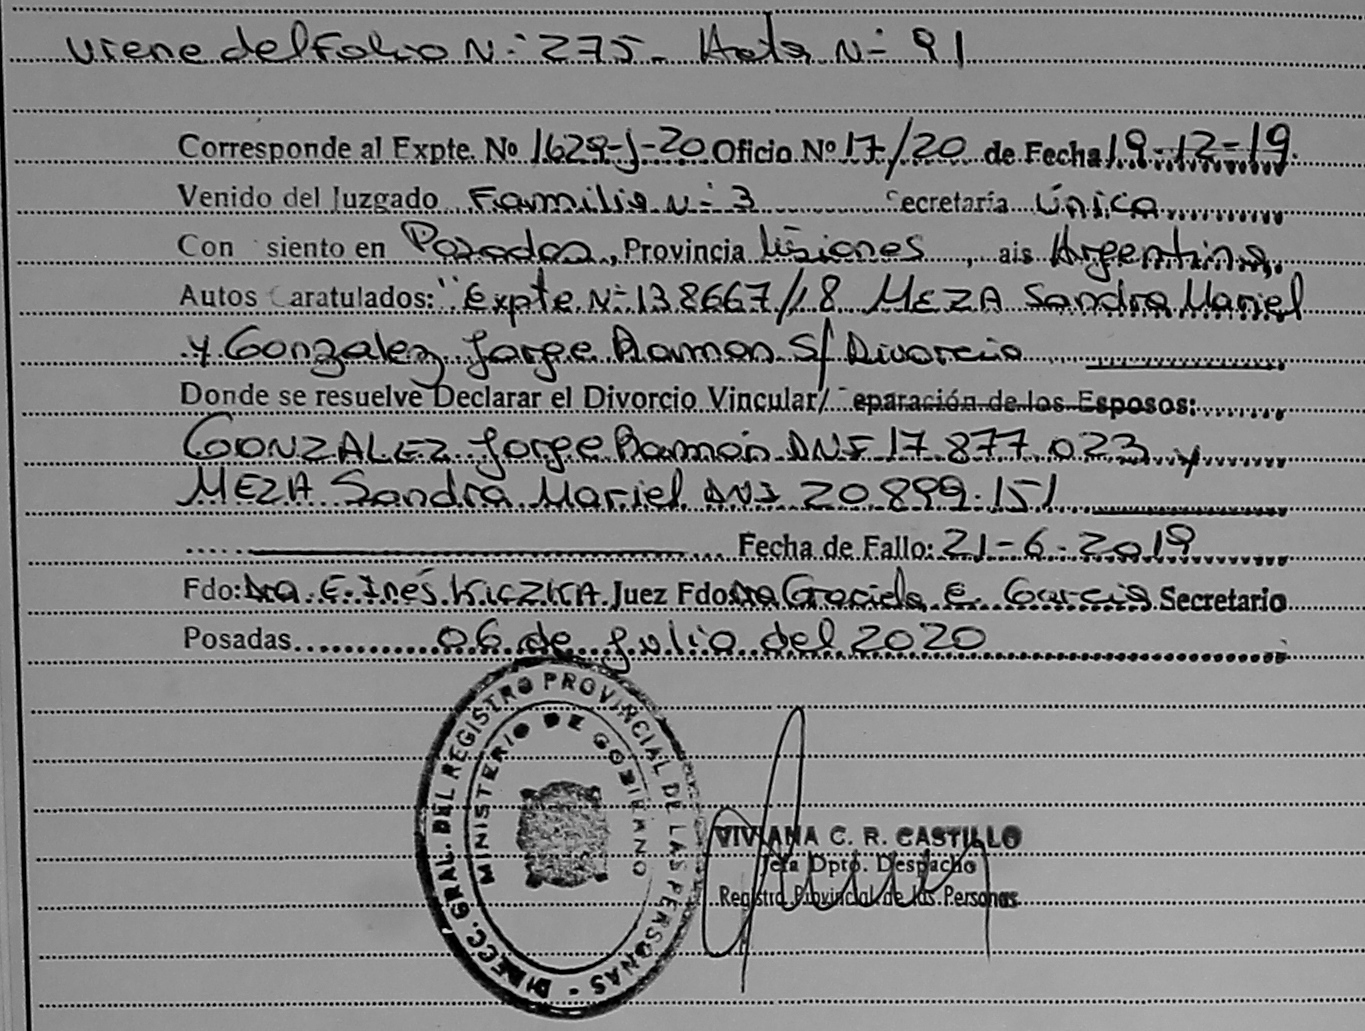 viene del Folio N- 275- Acta N- 91
Corresponde al Expte. Nº 1629-J-20 Oficio Nº 17/20 de Fecha 19-12-19.
Venido del Juzgado Familia N- 3 ecretaría Única
Con siento en Posadas, Provincia Misiones, ais Argentina,
Autos aratulados: "Expte N- 138667/18 MEZA Sandra Mariel
y Gonzalez Jorge Ramon S/ Divorcio
Donde se resuelve Declarar el Divorcio Vincular/ eparación de los Esposos:
GONZALEZ Jorge Ramón DNI 17.877.023 y
MEZA Sandra Mariel DNI 20.899.151
Fecha de Fallo: 21-6-2019
Fdo: Dra. E. Inés KICZKA Juez Fdo Dra Graciela E. Garcia Secretario
Posadas 06 de Julio del 2020
DIRECC. GRAL. DEL REGISTRO PROVINCIAL DE LAS PERSONAS -
MINISTERIO DE GOBIERNO
VIVIANA C. R. CASTILLO
Jefa Dpto. Despacho
Registro Provincial de las Personas